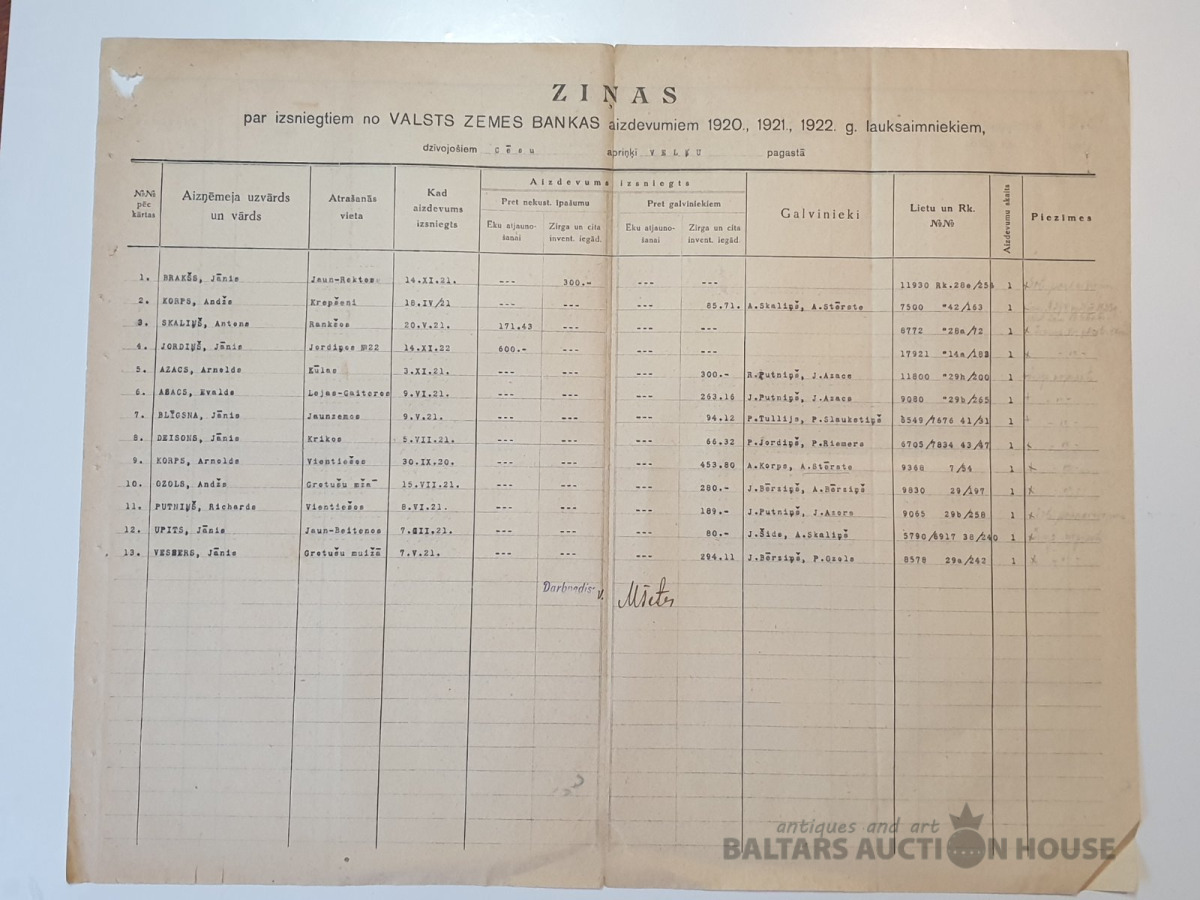 ZIŅAS
par izsniegtiem no VALSTS ZEMES BANKAS aizdevumiem 1920., 1921., 1922. g. lauksaimniekiem,
dzīvojošiem Cēsu apriņķi VEĻĶU pagastā
№№ pēc kārtas Aizņēmeja uzvārds un vārds Atrašanās vieta Kad aizdevums izsniegts Aizdevums izsniegts Galvinieki Lietu un Rk. №№ Aizdevumu skaits Piezīmes
Pret nekust. īpašumu Pret galviniekiem
Ēku atjaunošanai Zirga un cita invent. iegād. Ēku atjaunošanai Zirga un cita invent. iegād.
1. BRAKŠS, Jānis Jaun-Rektos 14.XI.21. --- 300.- 11930 Rk.28a/254 1
2. KORPS, Andžs Krepšeni 18.IV/21 --- --- --- 85.71. A.Skaliņš, A.Stērste 7500 "42/163 1
3. SKALIŅŠ, Antons Rankšos 20.V.21. 171.43 --- --- --- 8772 "28a/72 1
4. JORDIŅŠ, Jānis Jordiņos №22 14.XI.22 600.- --- --- --- 17921 "14a/182 1
5. AZACS, Arnolds Kūlas 3.XI.21. --- --- --- 300.- R.Putniņš, J.Azacs 11800 "29b/200 1
6. ASACS, Evalds Lejas-Gaiteros 9.VI.21. --- --- --- 263.16 J.Putniņš, J.Azacs 9080 "29b/265 1
7. BLĪOSNA, Jānis Jaunzemos 9.V.21. --- --- --- 94.12 P.Tullijs, P.Slauketiņš 8549/7676 41/31 1
8. DEISONS, Jānis Krikos 5.VII.21. --- --- --- 66.32 P.Jordiņš, P.Riemers 6705/7834 43/47 1
9. KORPS, Arnolds Vientiešos 30.IX.20. --- --- --- 453.80 A.Korps, A.Stērste 9368 7/54 1
10. OZOLS, Andžs Gretušu mžā 15.VII.21. --- --- --- 280.- J.Bērziņš, A.Bērziņš 9830 29/197 1
11. PUTNIŅŠ, Richards Vientiešos 8.VI.21. --- --- --- 189.- J.Putniņš, J.Azers 9065 29b/258 1
12. UPITS, Jānis Jaun-Beitenos --- --- --- 80.- J.Šids, A.Skaliņš 5790/8917 38/240 1
13. Jānis Gretušu muižā 7.V.21. --- --- --- 294.11 J.Bērziņš, P.Ozols 8578 29a/242 1
Darbvedis
antiques and art
BALTARS AUCTION HOUSE